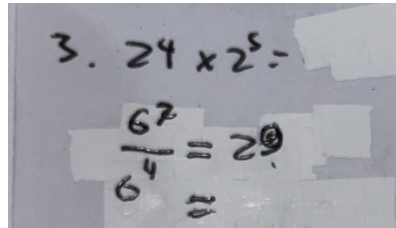 3. 2⁴ × 2⁵ =
6⁷/6⁴ = 2⁹
=